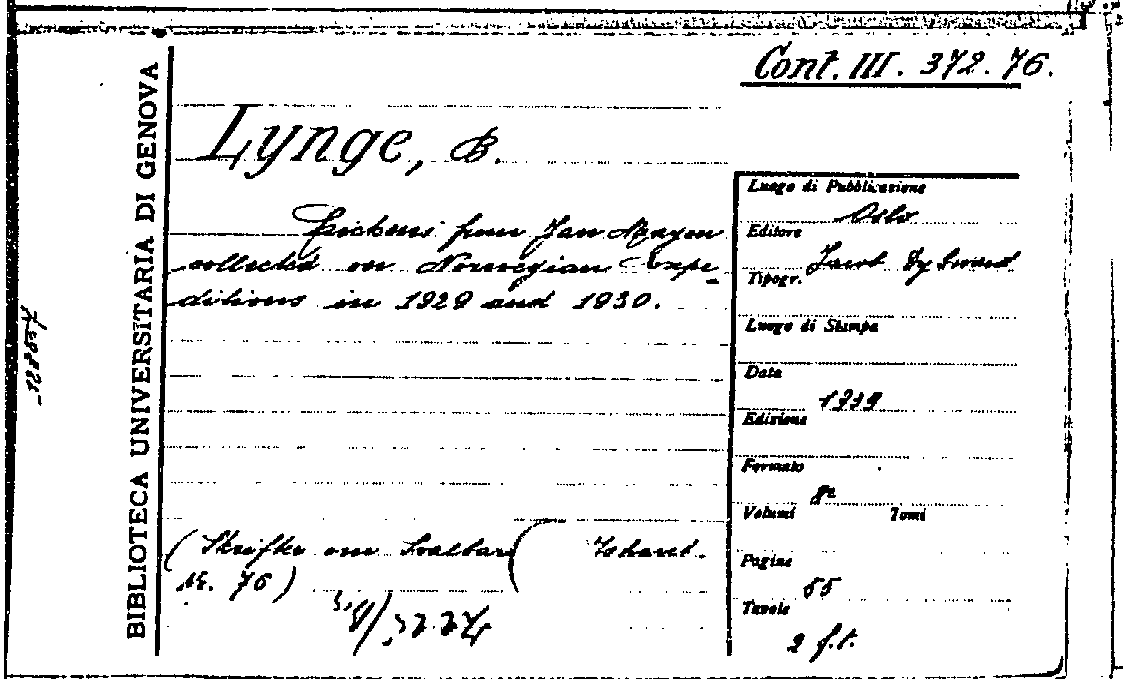 Cont. III. 372. 76.
BIBLIOTECA UNIVERSITARIA DI GENOVA
Lynge, B.
Lichens from Jan Mayen
collected on Norwegian Expe-
ditions in 1929 and 1930.
(Skrifter om Svalbard
Nr. 76)
Luogo di Pubblicazione
Oslo
Editore
Jacob Dybwad
Tipogr.
Luogo di Stampa
Data
1939
Edizione
Formato
8°
Volumi Tomi
Pagine
55
Tavole
2 f.t.